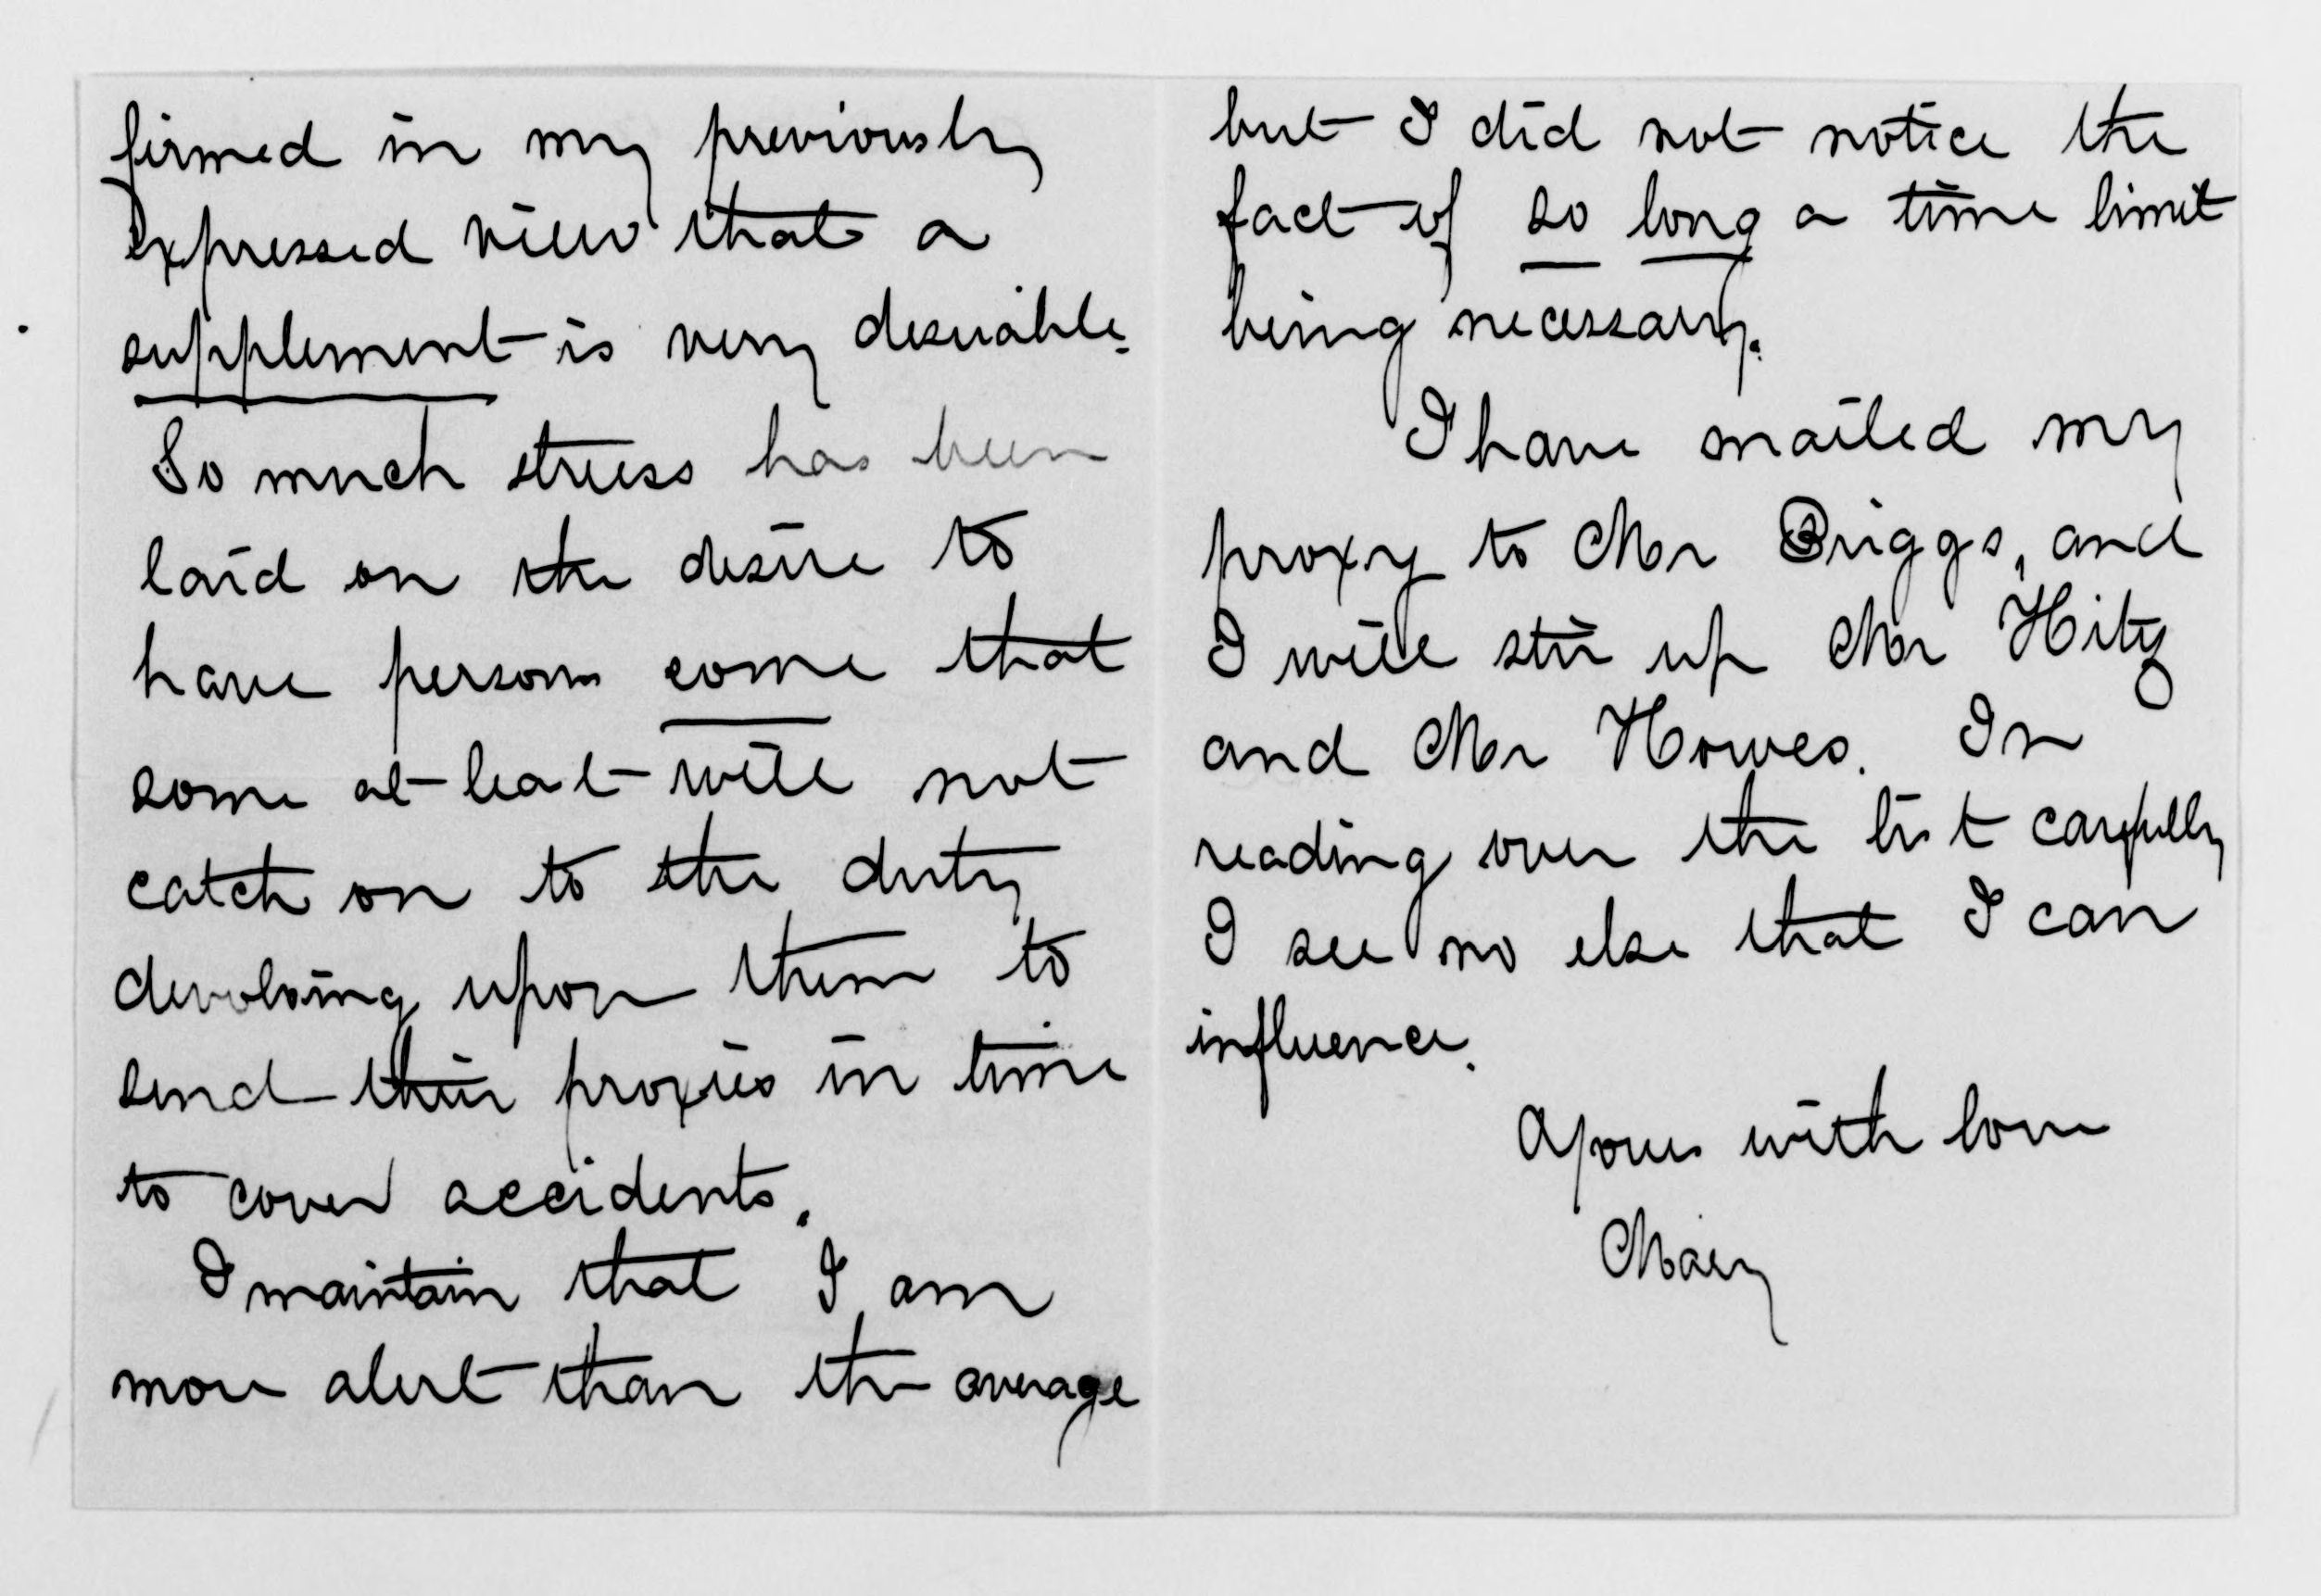 firmed in my previously
expressed view that a
supplement is very desirable.
So much stress has been
laid on the desire to
have persons come that
some at least will not
catch on to the duty
devolving upon them to
send their proxies in time
to cover accidents.
I maintain that I am
more alert than the average
but I did not notice the
fact of so long a time limit
being necessary.
I have mailed my
proxy to Mr Briggs, and
I will stir up Mr Hitz
and Mr Howes. In
reading over the list carefully
I see no else that I can
influence.
Yours with love
Mary